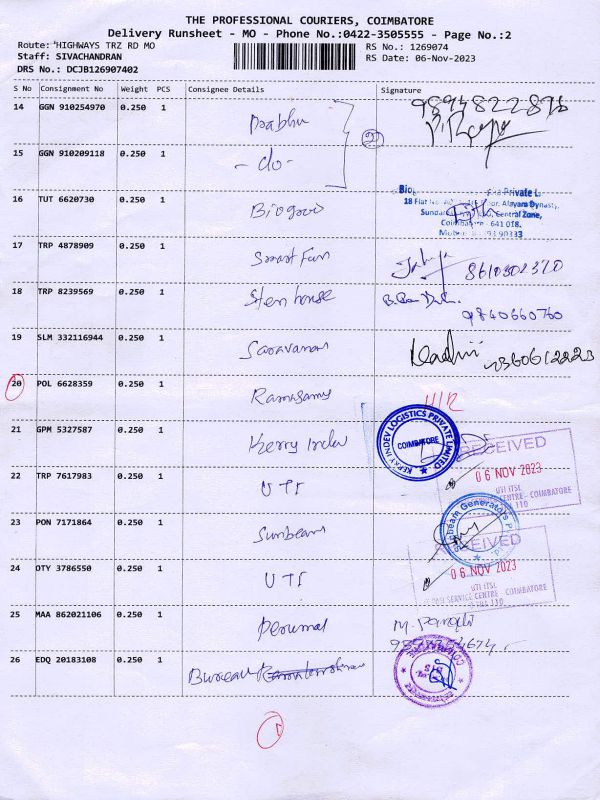 THE PROFESSIONAL COURIERS, COIMBATORE
Delivery Runsheet - MO - Phone No.:0422-3505555 - Page No.:2
Route: HIGHWAYS TRZ RD MO
RS No.: 1269074
Staff: SIVACHANDRAN
RS Date: 06-Nov-2023
DRS No.: DCJB126907402
S No Consignment No Weight PCS Consignee Details Signature
14 GGN 910254970 0.250 1 Prabhu 9894822876
15 GGN 910209118 0.250 1 - do -
16 TUT 6620730 0.250 1
Private L
Alayam Dynasty,
Central Zone,
641 018.
90333
17 TRP 4878909 0.250 1 Smart Fun 8610302320
18 TRP 8239569 0.250 1 Sten house
9840660760
19 SLM 332116944 0.250 1 Saravanan
20 POL 6628359 0.250 1 Ramasamy
21 GPM 5327587 0.250 1 Kerry Indev
KERRY INDEV LOGISTICS PRIVATE LIMITED
COIMBATORE
RECEIVED
06 NOV 2023
UTI ITSL
CENTRE - COIMBATORE
22 TRP 7617983 0.250 1 UTI
23 PON 7171864 0.250 1 Sunbeam
Sunbeam Generators
24 OTY 3786550 0.250 1 UTI
06 NOV 2023
UTI ITSL
PAN SERVICE CENTRE COIMBATORE
25 MAA 862021106 0.250 1 Perumal
26 EDQ 20183108 0.250 1 Bureau
1